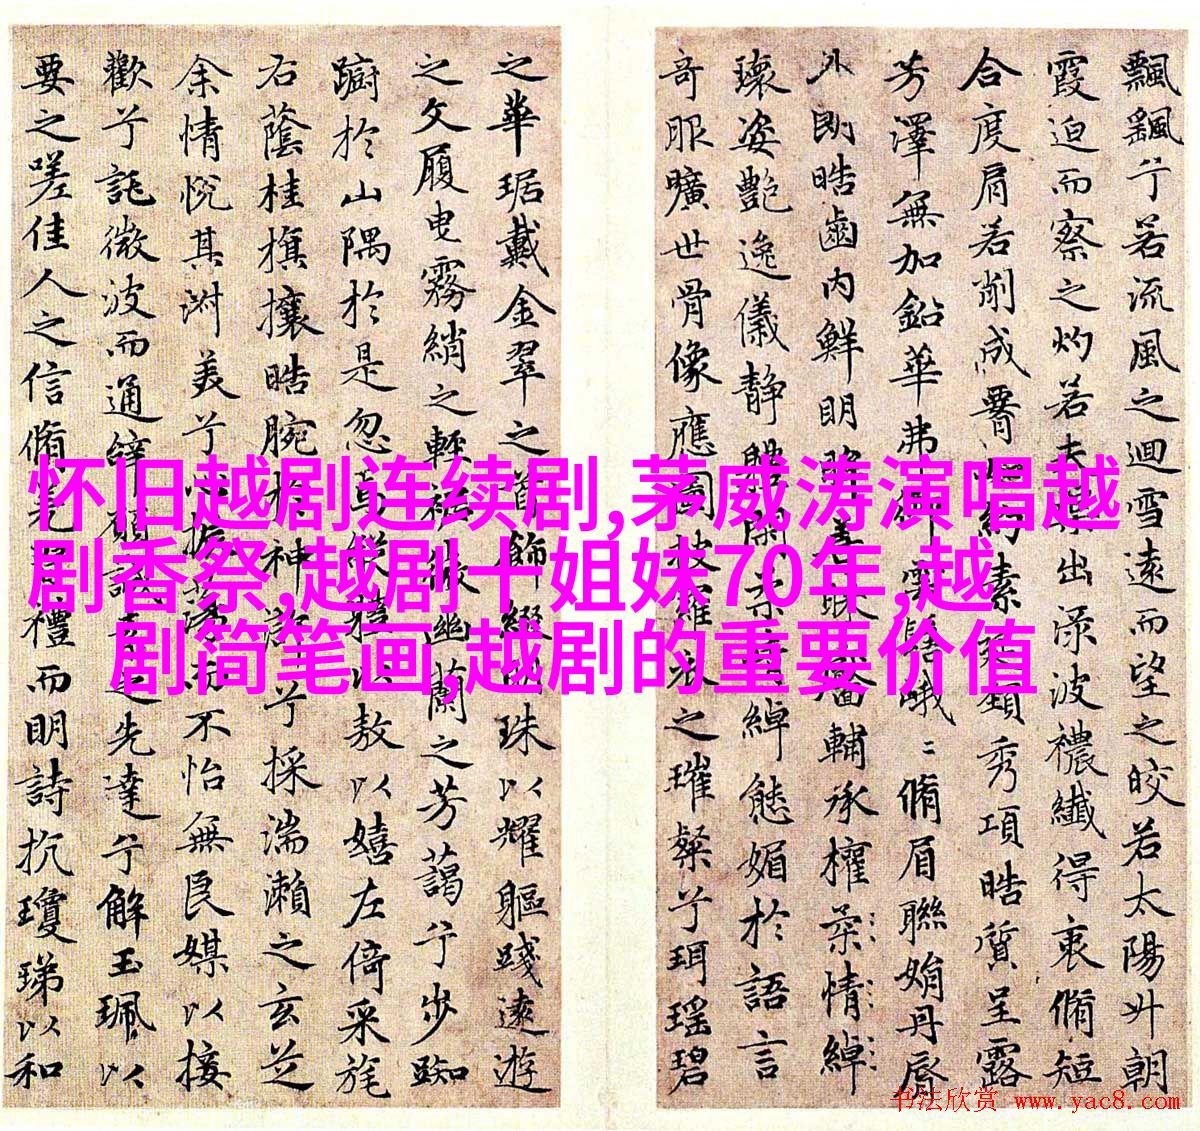 飄飖兮若流風之迴雪遠而望之皎若太陽升朝
霞迫而察之灼若夫出淥波襛纖得衷脩短
合度肩若削成約素頸秀項皓質呈露
芳澤無加鉛華弗御雲髻峨〻脩眉聯娟丹脣
外朗皓齒內鮮明眸善睞輔承權柔情綽
瓌姿艷逸儀靜體閑柔情綽態媚於語言
奇服曠世骨像應圖披羅衣之璀粲兮珥瑤碧
之華琚戴金翠之首飾綴明珠以耀軀踐遠遊
之文履曳霧綃之輕裾微幽蘭之芳藹兮步踟
躕於山隅於是忽焉縱體以敖以嬉左倚采旄
右蔭桂旗攘皓腕於神滸兮採湍瀨之玄芝
余情悅其淑美兮心振蕩而不怡無良媒以接
歡兮託微波而通辭願誠素之先達兮解玉珮以
要之嗟佳人之信脩羌習禮而明詩抗瓊珶以和
怀旧越剧连续剧,茅威涛演唱越
剧香祭,越剧十姐妹70年,越
剧简笔画,越剧的重要价值
书法欣赏 www.yac8.com